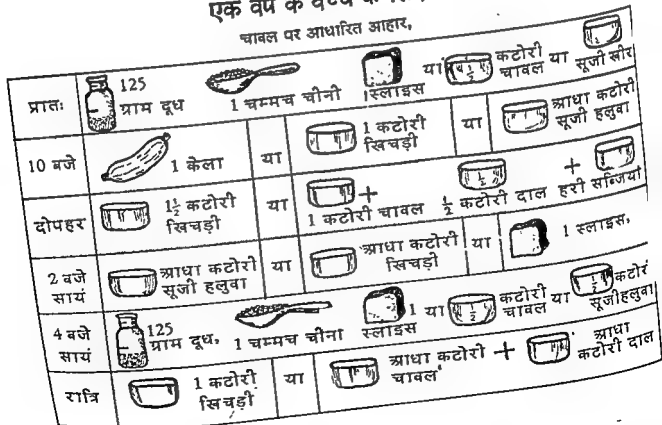 एक वर्ष के बच्चे
चावल पर आधारित आहार,
प्रातः 125 ग्राम दूध 1 चम्मच चीनी 1स्लाइस या 1/2 कटोरी चावल या सूजी खीर
10 बजे 1 केला या 1 कटोरी खिचड़ी या आधा कटोरी सूजी हलुवा
दोपहर 1½ कटोरी खिचड़ी या 1 कटोरी चावल + ½ कटोरी दाल + हरी सब्जियां
2 बजे सायं आधा कटोरी सूजी हलुवा या आधा कटोरी खिचड़ी या 1 स्लाइस,
4 बजे सायं 125 ग्राम दूध, 1 चम्मच चीना 1 स्लाइस या 1/2 कटोरी चावल या 1/2 कटोरी सूजीहलुवा
रात्रि 1 कटोरी खिचड़ी या आधा कटोरी चावल + आधा कटोरी दाल